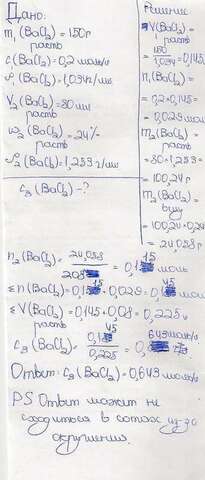 Дано:
m₁(BaCl₂) = 150 г
раств
c₁(BaCl₂) = 0,2 моль/л
ρ₁(BaCl₂) = 1,034 г/мл
раств
V₂(BaCl₂) = 80 мл
раств
ω₂(BaCl₂) = 24%
раств
ρ₂(BaCl₂) = 1,253 г/мл
c₃(BaCl₂) - ?
Решение
V(BaCl₂) =
раств
= 150/1,034 = 0,145
n₁(BaCl₂) =
= 0,2 · 0,145 =
= 0,029 моль
m₂(BaCl₂) =
раств
= 80 · 1,253 =
= 100,24 г
m₂(BaCl₂) =
= 100,24 · 0,24
= 24,058 г
n₂(BaCl₂) = 24,058/208 = 0,1 моль
Σn(BaCl₂) = 0,1 + 0,029 = 0, моль
ΣV(BaCl₂) = 0,145 + 0,08 = 0,225 л
раств
c₃(BaCl₂) = 0,145/0,225 = 0,643 моль/л
Ответ: c₃(BaCl₂) = 0,643 моль/л
PS Ответ может не
сходиться в сотых из-за
округления.